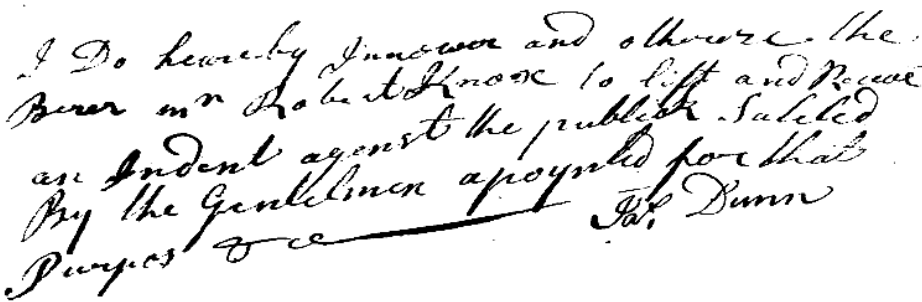 I Do heareby Innower and otherize the
Berer mr Robert Knox to lift and Receve
an Indent agenst the publick Sateled
By the Gentelmen apoynted for that
Purpes &ce Jas. Dunn